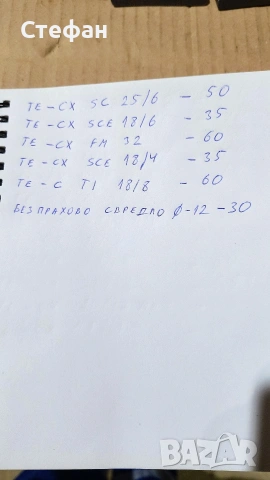 Стефан
TE-CX SC 25/6 - 50
TE-CX SCE 18/6 - 35
TE-CX FM 32 - 60
TE-CX SCE 18/4 - 35
TE-C T1 18/8 - 60
БЕЗПРАХОВО СВРЕДЛО ф-12 -30
BAZAR